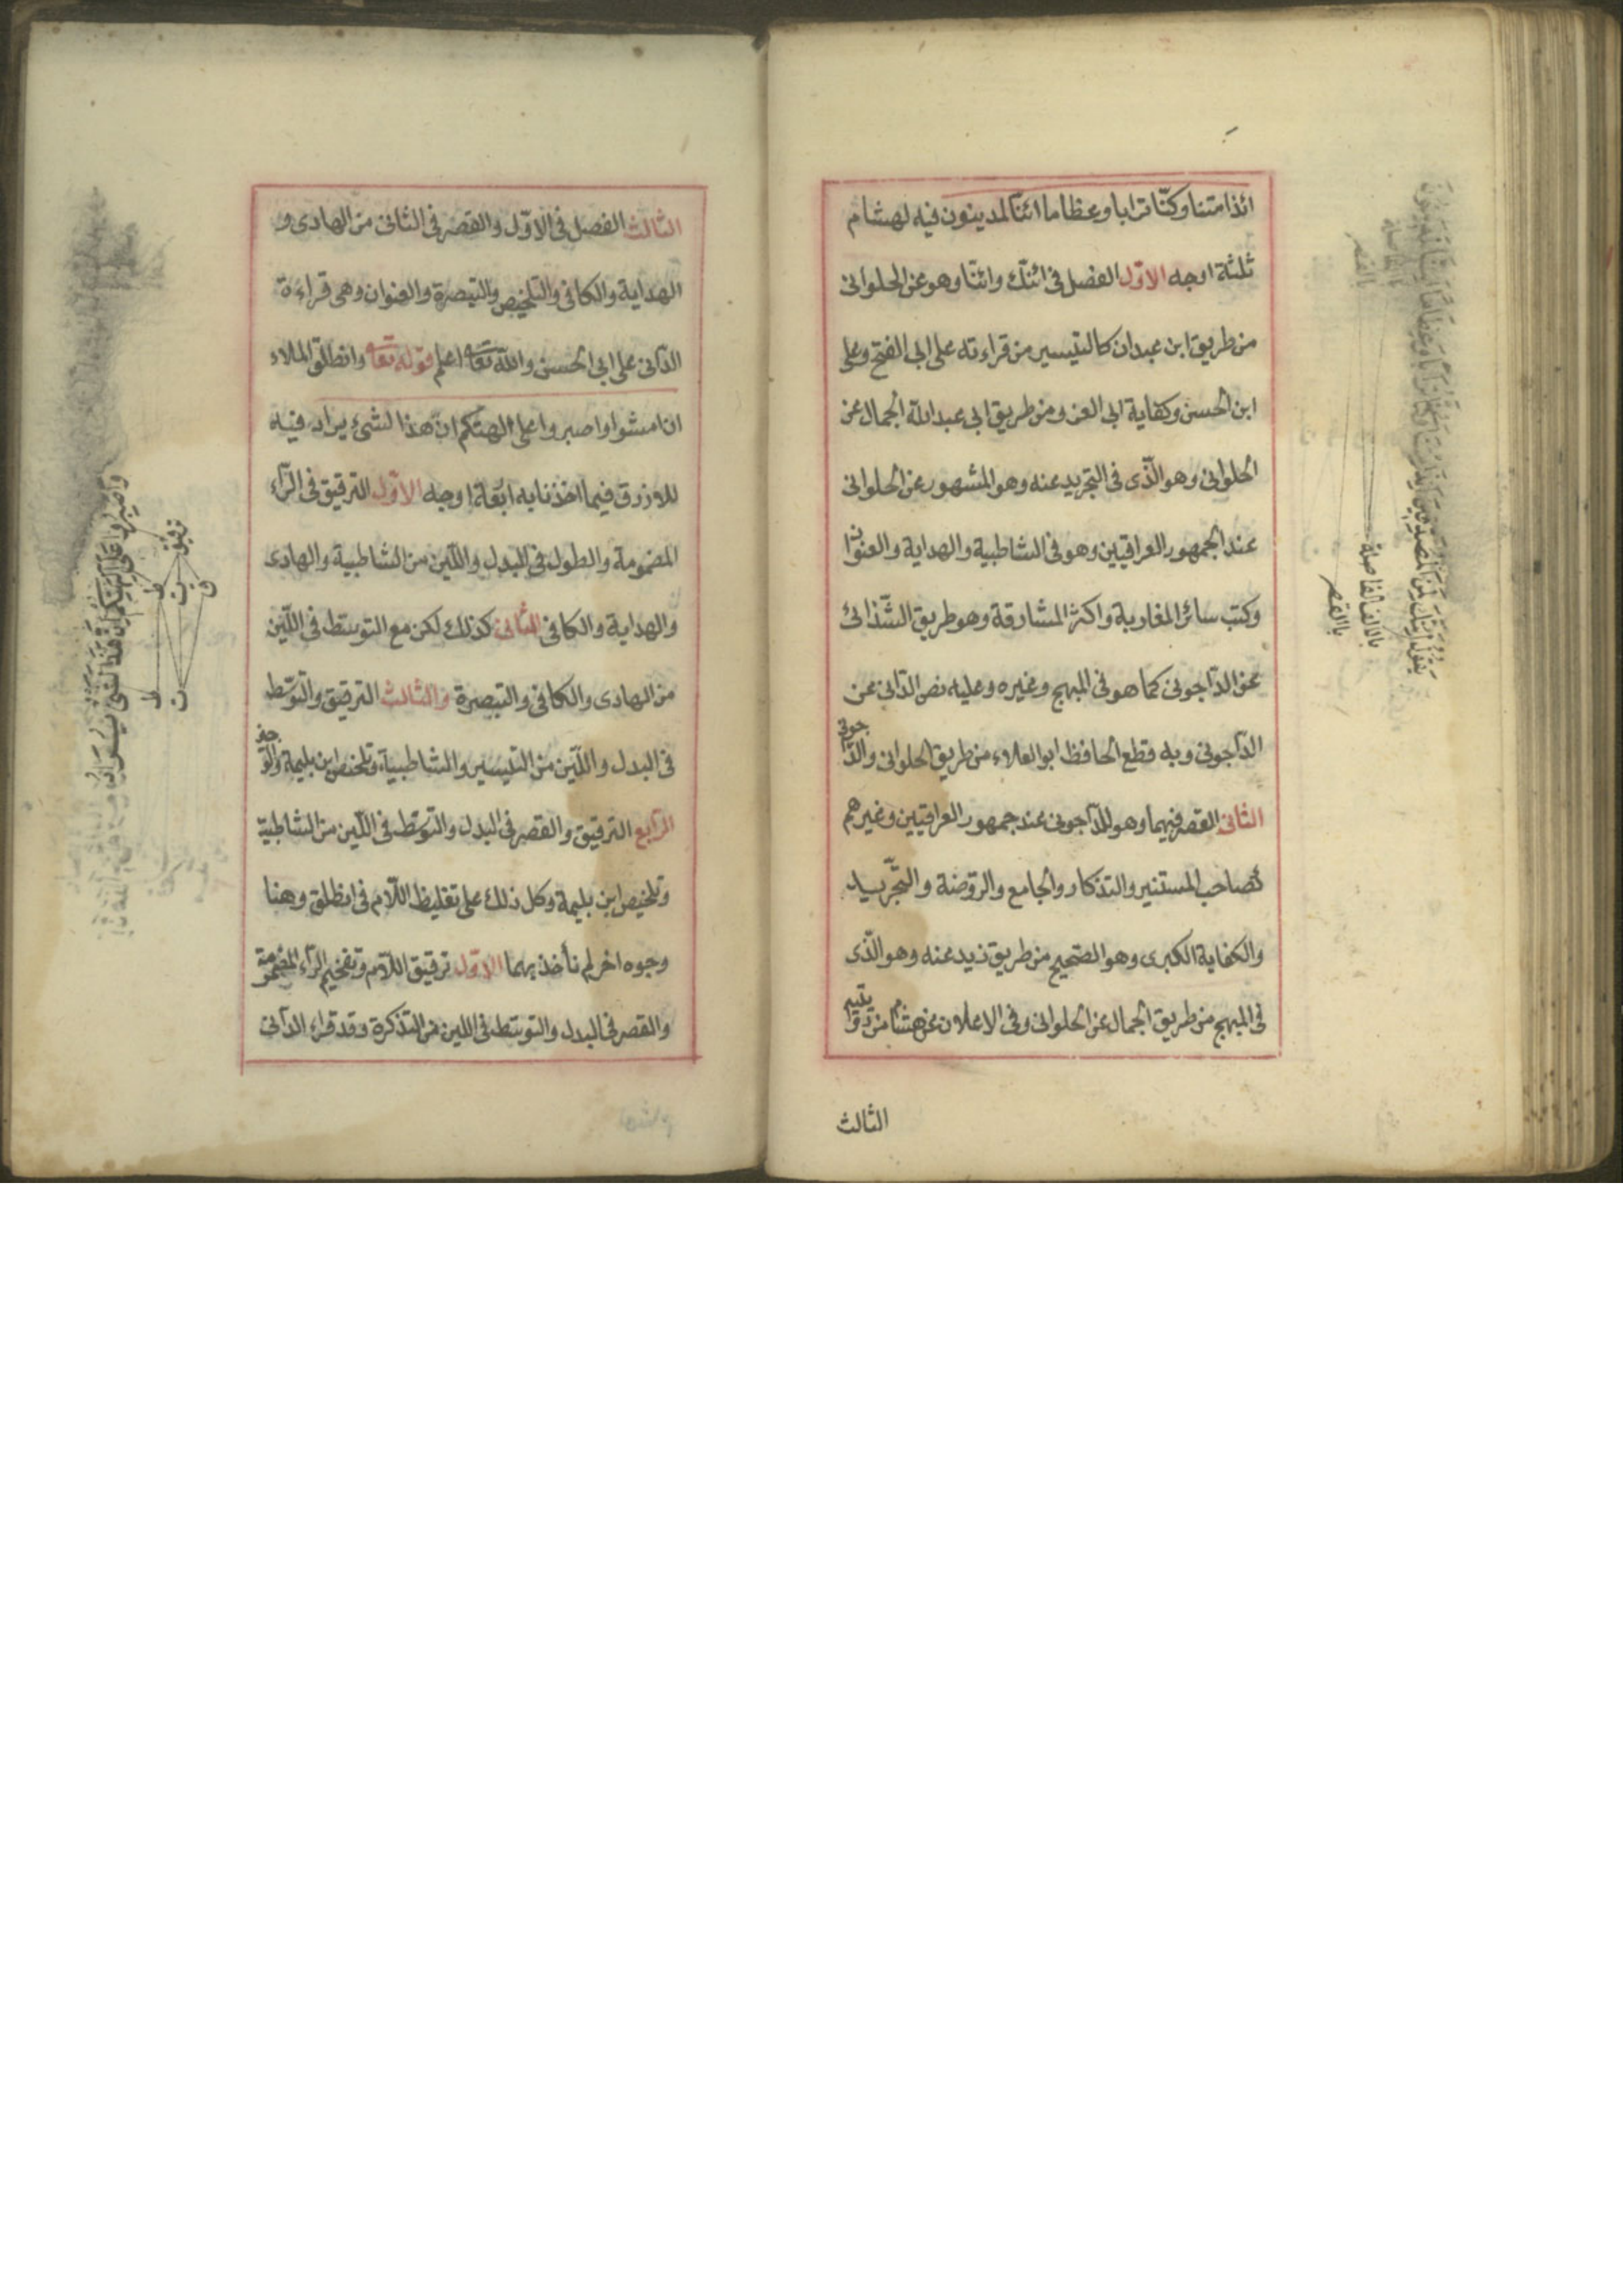 ائذا متنا وكنّا ترابا وعظاما ائنّا لمدينون فيه لهشام
ثلثة اوجه الاوّل الفصل فى ائنّك وائنّا وهو عن الحلوانى
من طريق ابن عبدان كالتيسير من قراءته على ابى الفتح وعلى
ابن الحسن وكفاية ابى العز ومن طريق ابى عبدالله الجمال عن
الحلوانى وهو الّذى فى التجريد عنه وهو المشهور عن الحلوانى
عند الجمهور العراقيين وهو فى الشاطبية والهداية والعنوان
وكتب سائر المغاربة واكثر المشارقة وهو طريق الشّذائى
عن الدّاجونى كما هو فى المبهج وغيره وعليه نص الدّانى عن
الدّاجونى وبه قطع الحافظ ابو العلاء من طريق الحلوانى والدّاجونى
الثانى القصر فيهما وهو للدّاجونى عند جمهور العراقيين وغيرهم
كصاحب المستنير والتذكار والجامع والروضة والتّجريد
والكفاية الكبرى وهو الصّحيح من طريق زيد عنه وهو الّذى
فى المبهج من طريق الجمال عن الحلوانى وفى الاعلان عن هشام من
الثالث
يَقُولُ اَئِنَّكَ لَمِنَ الْمُصَدِّقِينَ
بالالف الفاصلة
بالقصر
الثالث الفصل فى الاوّل والقصر فى الثانى من الهادى و
الهداية والكافى والتلخيص والتبصرة والعنوان وهى قراءة
الدّانى على ابى الحسن والله تعا اعلم قوله تعا وانطلق الملاء
ان امشوا واصبروا على الهتكم انّ هذا لشئ يراد فيه
للازرق فيما اخذنا به اربعة اوجه الاوّل الترقيق فى الرّاء
المضمومة والطول فى البدل واللّين من الشاطبية والهادى
والهداية والكافى الثانى كذلك لكن مع التوسّط فى اللّين
من الهادى والكافى والتبصرة والثالث الترقيق والتوسّط
فى البدل واللّين من التيسير والشاطبية وتلخيص ابن بليمة
الرّابع الترقيق والقصر فى البدل والتوسّط فى اللّين من الشاطبيّة
وتلخيص ابن بليمة وكل ذلك على تغليظ اللّام فى انطلق وهنا
وجوه اخر لم نأخذ بهما الاوّل ترقيق اللّام وتفخيم الرّاء المضمومة
والقصر فى البدل والتوسّط فى اللين من التذكرة وقد قراء الدّانى
وَاصْبِرُوا عَلَى اٰلِهَتِكُمْ اِنَّ هٰذَا لَشَىْءٌ يُرَادُ
ط ت ق
ط ت